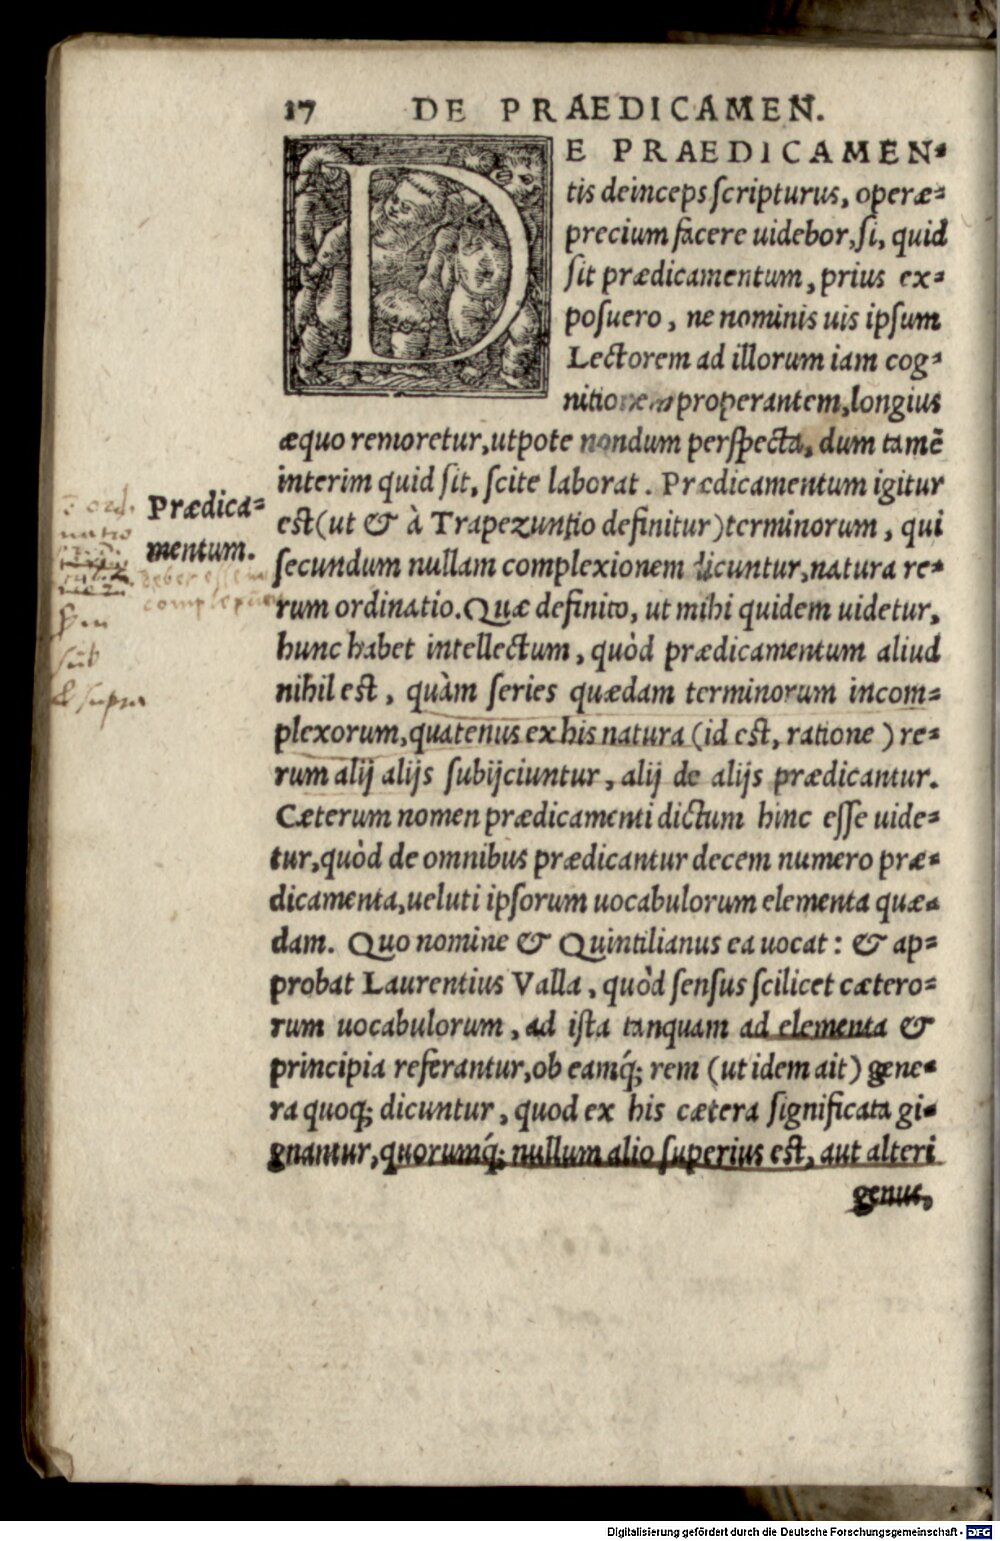 17 DE PRAEDICAMEN.
DE PRAEDICAMEN-
tis deinceps scripturus, operæ-
precium facere uidebor, si, quid
sit prædicamentum, prius ex-
posuero, ne nominis uis ipsum
Lectorem ad illorum iam cog-
nitionem properantem, longius
æquo remoretur, utpote nondum perspecta, dum tamẽ
interim quid sit, scite laborat. Prædicamentum igitur
est (ut & à Trapezuntio definitur) terminorum, qui
secundum nullam complexionem dicuntur, natura re-
rum ordinatio. Quæ definito, ut mihi quidem uidetur,
hunc habet intellectum, quòd prædicamentum aliud
nihil est, quàm series quædam terminorum incom-
plexorum, quatenus ex his natura (id est, ratione) re-
rum alij alijs subijciuntur, alij de alijs prædicantur.
Cæterum nomen prædicamenti dictum hinc esse uide-
tur, quòd de omnibus prædicantur decem numero præ-
dicamenta, ueluti ipsorum uocabulorum elementa quæ-
dam. Quo nomine & Quintilianus ea uocat: & ap-
probat Laurentius Valla, quòd sensus scilicet cætero-
rum uocabulorum, ad ista tanquam ad elementa &
principia referantur, ob eamq́; rem (ut idem ait) gene-
ra quoq; dicuntur, quod ex his cætera significata gi-
gnantur, quorumq́; nullum alio superius est, aut alteri
genus,
Prædica-
mentum.
ord.
natio
sub
& supra
Digitalisierung gefördert durch die Deutsche Forschungsgemeinschaft - DFG